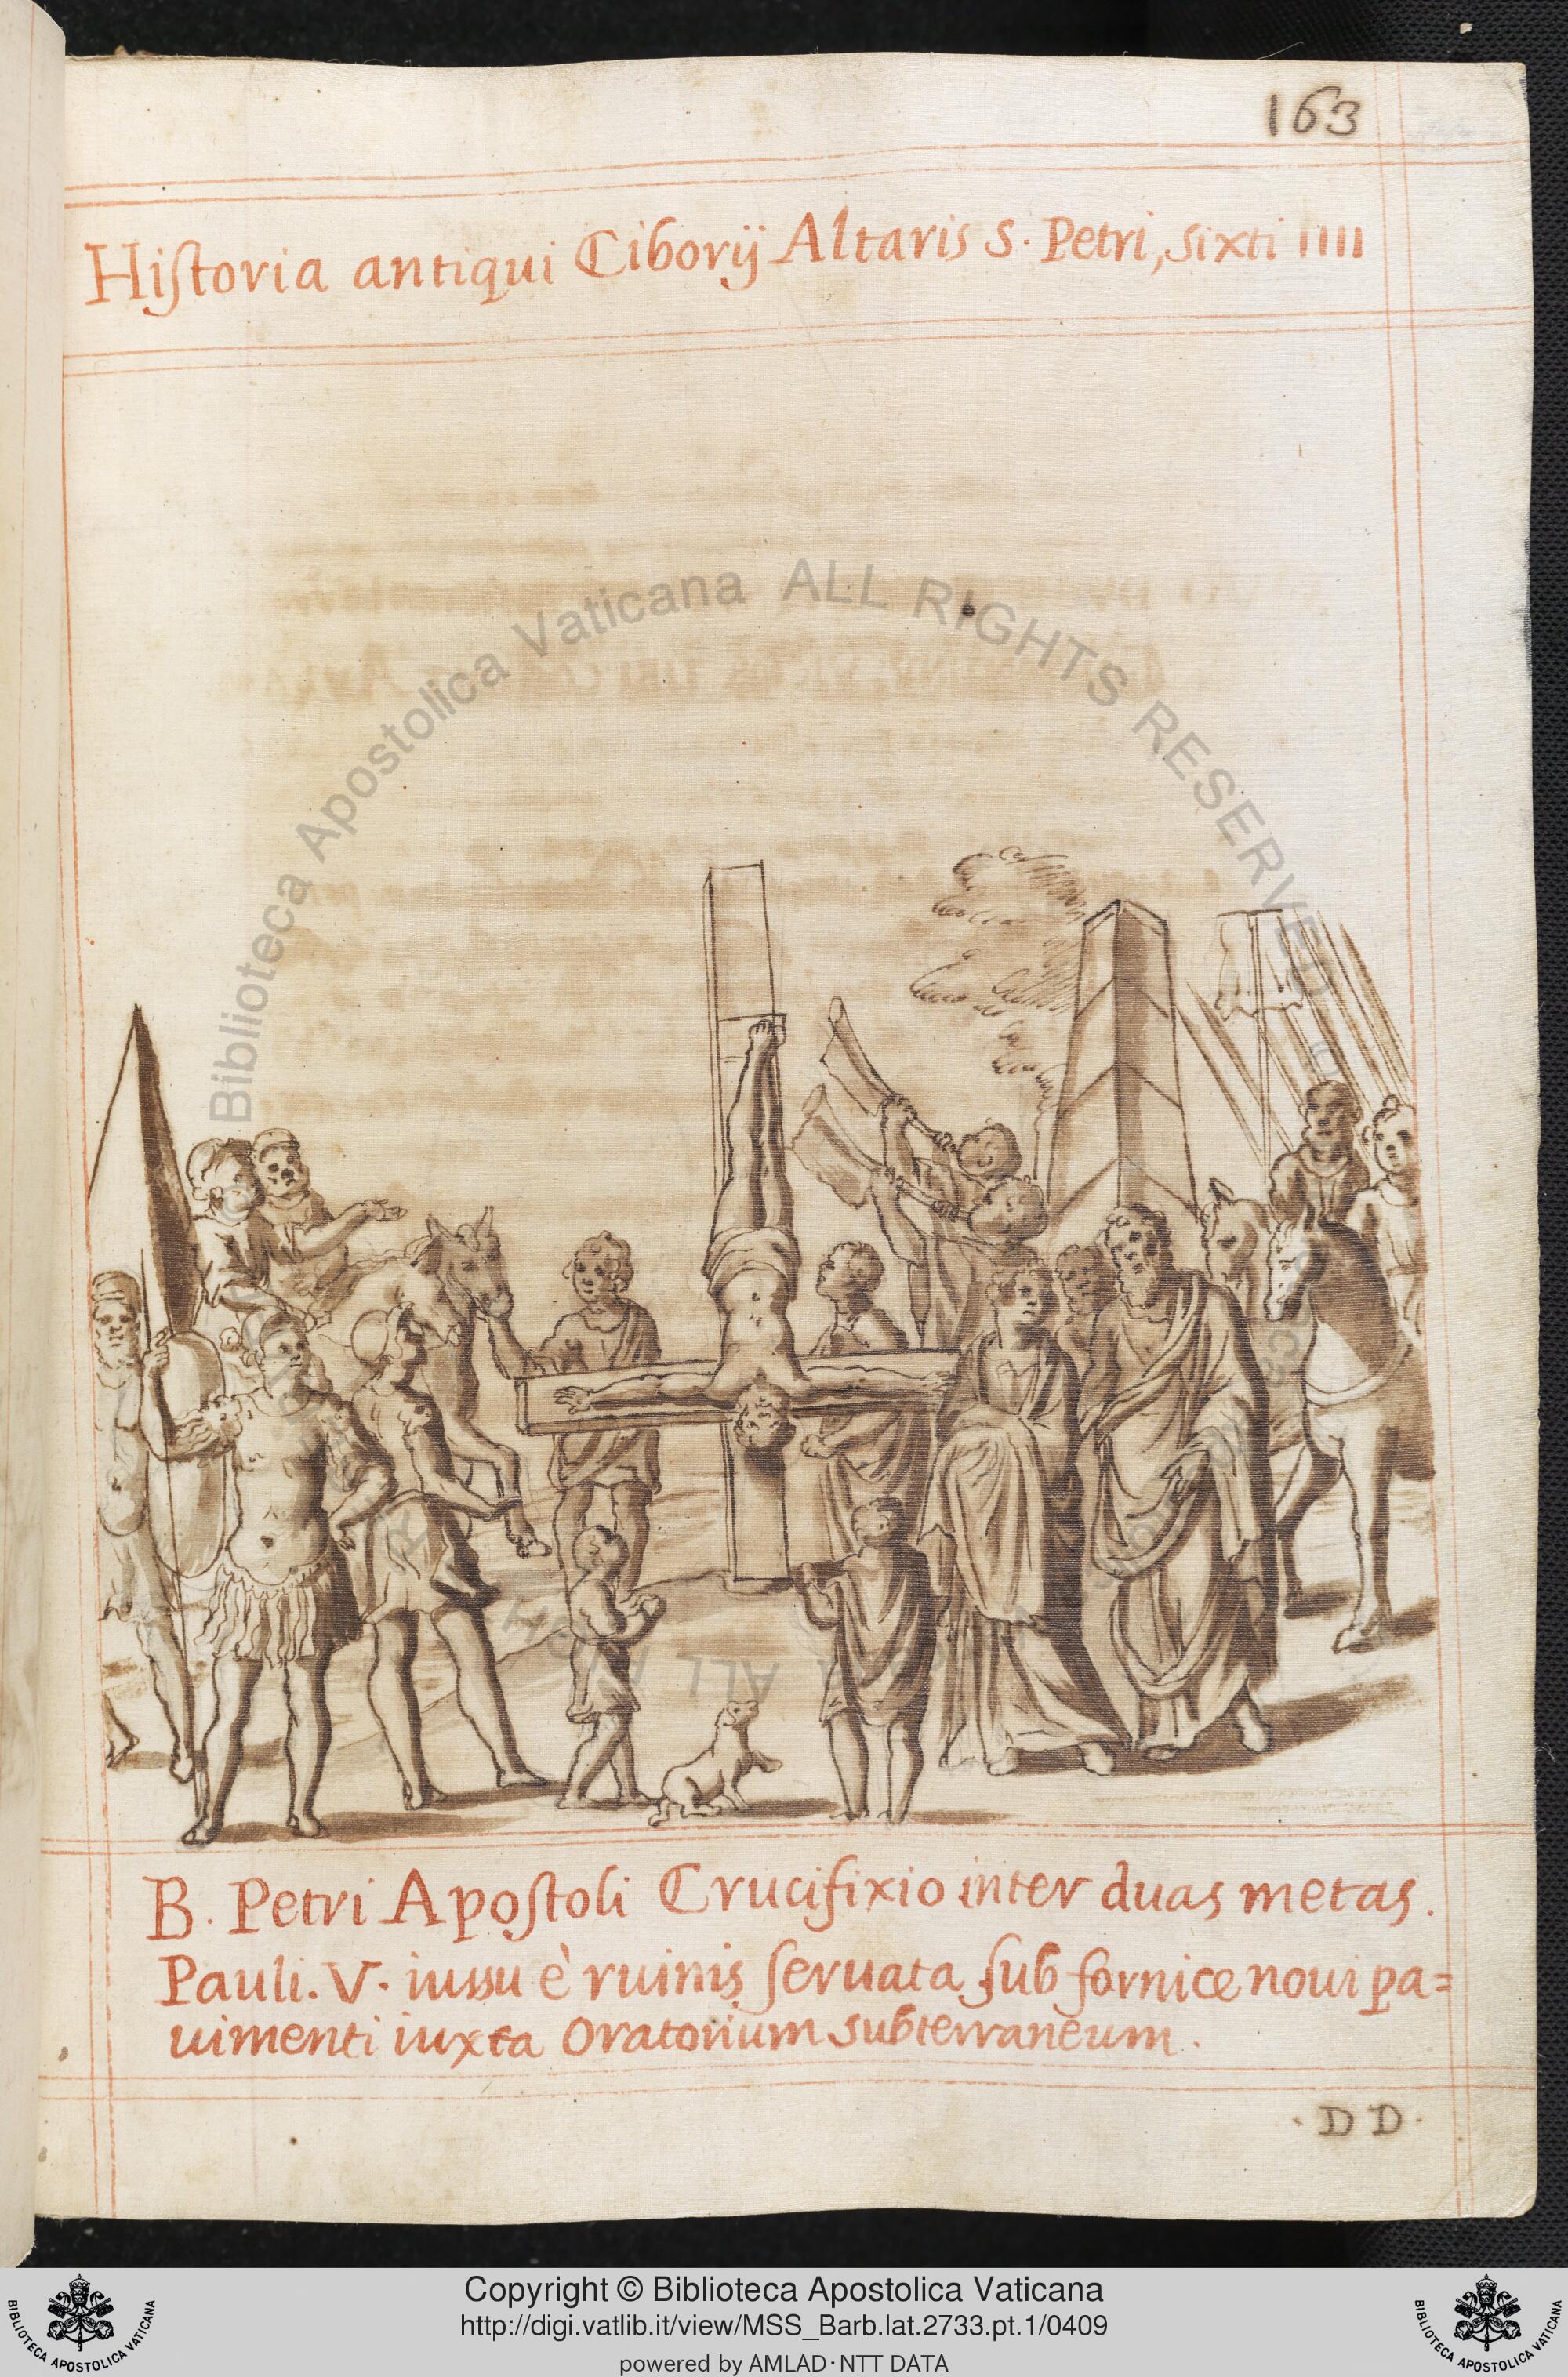 163
Hiſtoria antiqui Ciborij Altaris S. Petri, Sixti IIII
B. Petri Apoſtoli Crucifixio inter duas metas.
Pauli. V. iussu è ruinis ſeruata ſub fornice noui pa=
uimenti iuxta Oratorium subterraneum.
. D D .
Biblioteca Apostolica Vaticana ALL RIGHTS RESERVED
Copyright © Biblioteca Apostolica Vaticana
http://digi.vatlib.it/view/MSS_Barb.lat.2733.pt.1/0409
powered by AMLAD·NTT DATA
BIBLIOTECA APOSTOLICA VATICANA
BIBLIOTECA APOSTOLICA VATICANA